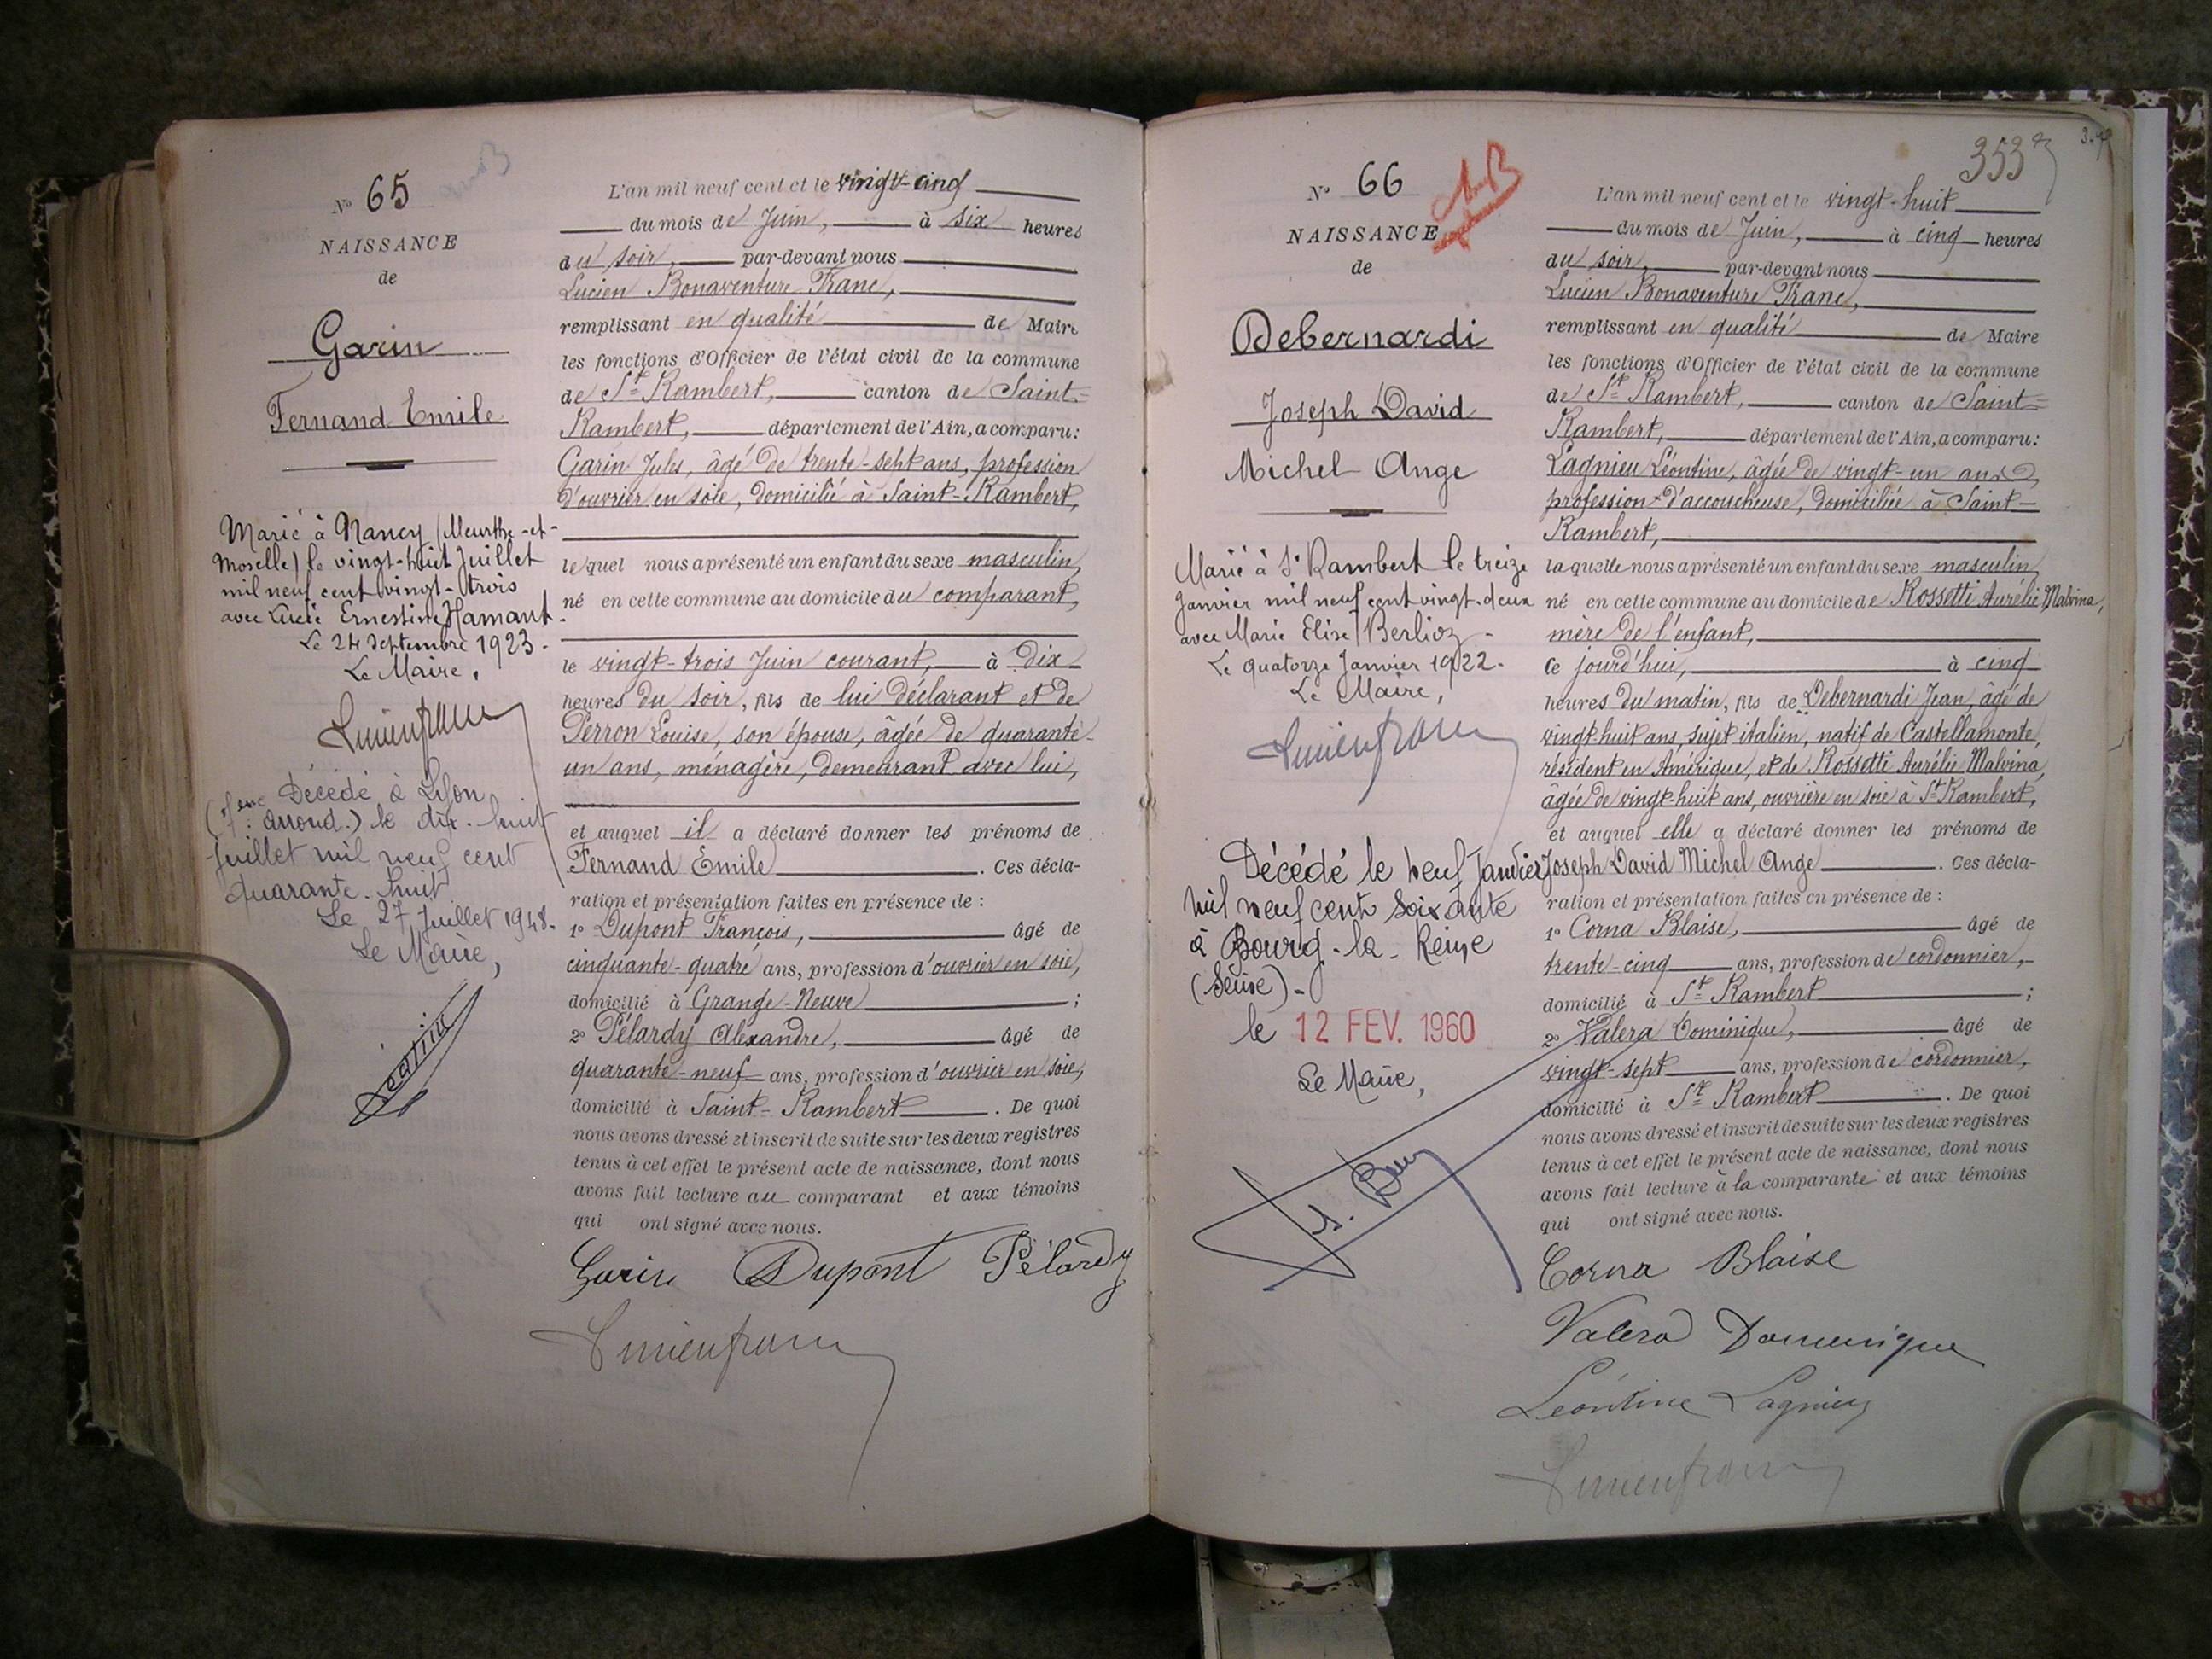 N° 65
NAISSANCE
de
Garin
Fernand Emile
Marié à Nancy (Meurthe-et-
Moselle) le vingt-huit Juillet
mil neuf cent vingt-trois
avec Lucie Ernestine Hamant.
Le 24 Septembre 1923.
Le Maire,
Lucien franc
Décédé à Lyon
(7eme arrond.) le dix-huit
Juillet mil neuf cent
quarante-huit
Le 27 Juillet 1948.
Le Maire,
L'an mil neuf cent et le vingt-cinq
du mois de Juin, à six heures
du soir, par-devant nous
Lucien Bonaventure Franc,
remplissant en qualité de Maire
les fonctions d'Officier de l'état civil de la commune
de St Rambert, canton de Saint-
Rambert, département de l'Ain, a comparu:
Garin Jules, âgé de trente-sept ans, profession
d'ouvrier en soie, domicilié à Saint-Rambert,
lequel nous a présenté un enfant du sexe masculin,
né en cette commune au domicile du comparant,
le vingt-trois Juin courant, à dix
heures du soir, fils de lui déclarant et de
Perron Louise, son épouse, âgée de quarante-
un ans, ménagère, demeurant avec lui,
et auquel il a déclaré donner les prénoms de
Fernand Émile. Ces décla-
ration et présentation faites en présence de :
1° Dupont François, âgé de
cinquante-quatre ans, profession d'ouvrier en soie,
domicilié à Grange-Neuve ;
2° Pélardy Alexandre, âgé de
quarante-neuf ans, profession d'ouvrier en soie,
domicilié à Saint-Rambert. De quoi
nous avons dressé et inscrit de suite sur les deux registres
tenus à cet effet le présent acte de naissance, dont nous
avons fait lecture au comparant et aux témoins
qui ont signé avec nous.
Garin Dupont Pélardy
Lucien franc
353
N° 66
NAISSANCE
de
Debernardi
Joseph David
Michel Ange
Marié à St Rambert le treize
Janvier mil neuf cent vingt-deux
avec Marie Elise Berlioz -
Le quatorze Janvier 1922.
Le Maire,
Lucien franc
Décédé le neuf Janvier
mil neuf cent soixante
à Bourg-la-Reine
(Seine) -
le 12 FEV. 1960
Le Maire,
L'an mil neuf cent et le vingt-huit
du mois de Juin, à cinq heures
du soir, par-devant nous
Lucien Bonaventure Franc,
remplissant en qualité de Maire
les fonctions d'Officier de l'état civil de la commune
de St Rambert, canton de Saint-
Rambert, département de l'Ain, a comparu:
Lagnieu Léontine, âgée de vingt-un ans,
profession d'accoucheuse, domiciliée à Saint-
Rambert,
laquelle nous a présenté un enfant du sexe masculin,
né en cette commune au domicile de Rossetti Aurélie Malvina,
mère de l'enfant,
ce jourd'hui, à cinq
heures du matin, fils de Debernardi Jean, âgé de
vingt huit ans, sujet italien, natif de Castellamonte,
résident en Amérique, et de Rossetti Aurélie Malvina,
âgée de vingt-huit ans, ouvrière en soie à St Rambert,
et auquel elle a déclaré donner les prénoms de
Joseph David Michel Ange. Ces décla-
ration et présentation faites en présence de :
1° Corna Blaise, âgé de
trente-cinq ans, profession de cordonnier,
domicilié à St Rambert ;
2° Valera Dominique, âgé de
vingt-sept ans, profession de cordonnier,
domicilié à St Rambert. De quoi
nous avons dressé et inscrit de suite sur les deux registres
tenus à cet effet le présent acte de naissance, dont nous
avons fait lecture à la comparante et aux témoins
qui ont signé avec nous.
Corna Blaise
Valera Domenique
Léontine Lagnieu
Lucien franc